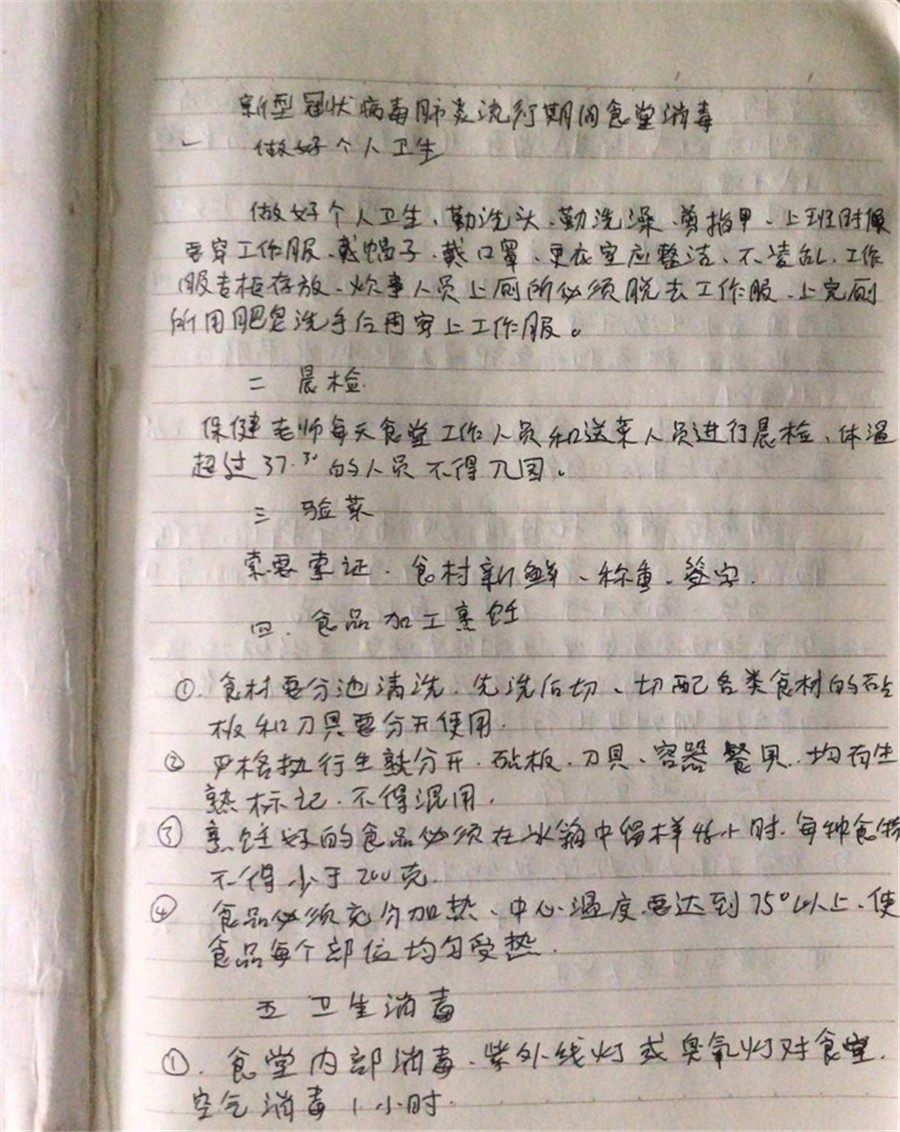 新型冠状病毒肺炎流行期间食堂消毒
一 做好个人卫生
做好个人卫生、勤洗头、勤洗澡、剪指甲、上班时候
要穿工作服、戴帽子、戴口罩、更衣室应整洁、不凌乱、工作
服专柜存放、炊事人员上厕所必须脱去工作服、上完厕
所用肥皂洗手后再穿上工作服。
二 晨检
保健老师每天食堂工作人员和送菜人员进行晨检、体温
超过37.3°的人员不得入园。
三 验菜
索要索证、食材新鲜、称重、签字.
四.食品加工烹饪
①.食材要分池清洗.先洗后切、切配各类食材的砧
板和刀具要分开使用.
② 严格执行生熟分开.砧板.刀具、容器餐具.均有生
熟标记.不得混用.
③ 烹饪好的食品必须在冰箱中留样48小时.每种食物
不得少于200克.
④ 食品必须充分加热、中心温度要达到75°以上、使
食品每个部位均匀受热.
五 卫生消毒
①.食堂内部消毒、紫外线灯或臭氧灯对食堂.
空气消毒1小时.